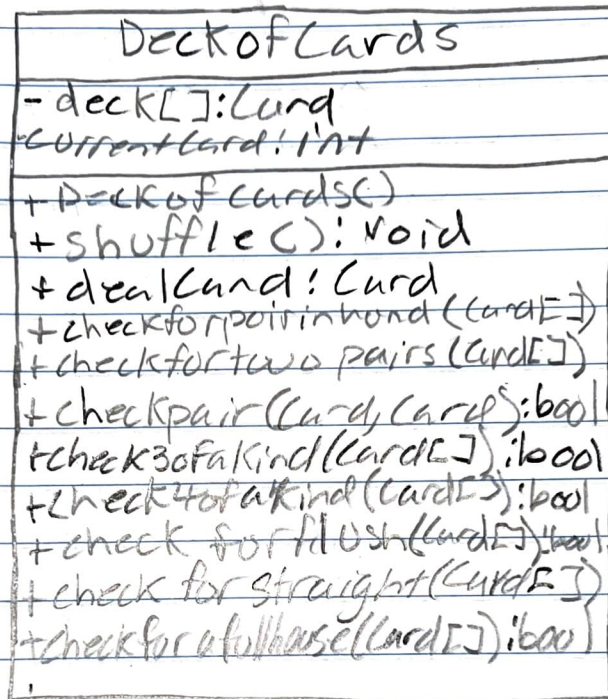 DeckofCards
- deck[]:Card
-currentCard:int
+DeckofCards()
+shuffle():void
+dealCard:Card
+checkforpairinhand(Card[])
+checkfortwo pairs(Card[])
+checkpair(Card,Card):bool
+check3ofaKind(Card[]):bool
+check4ofaKind(Card[]):bool
+check forflush(Card[]):bool
+check for straight(Card[])
+checkforafullhouse(Card[]):bool